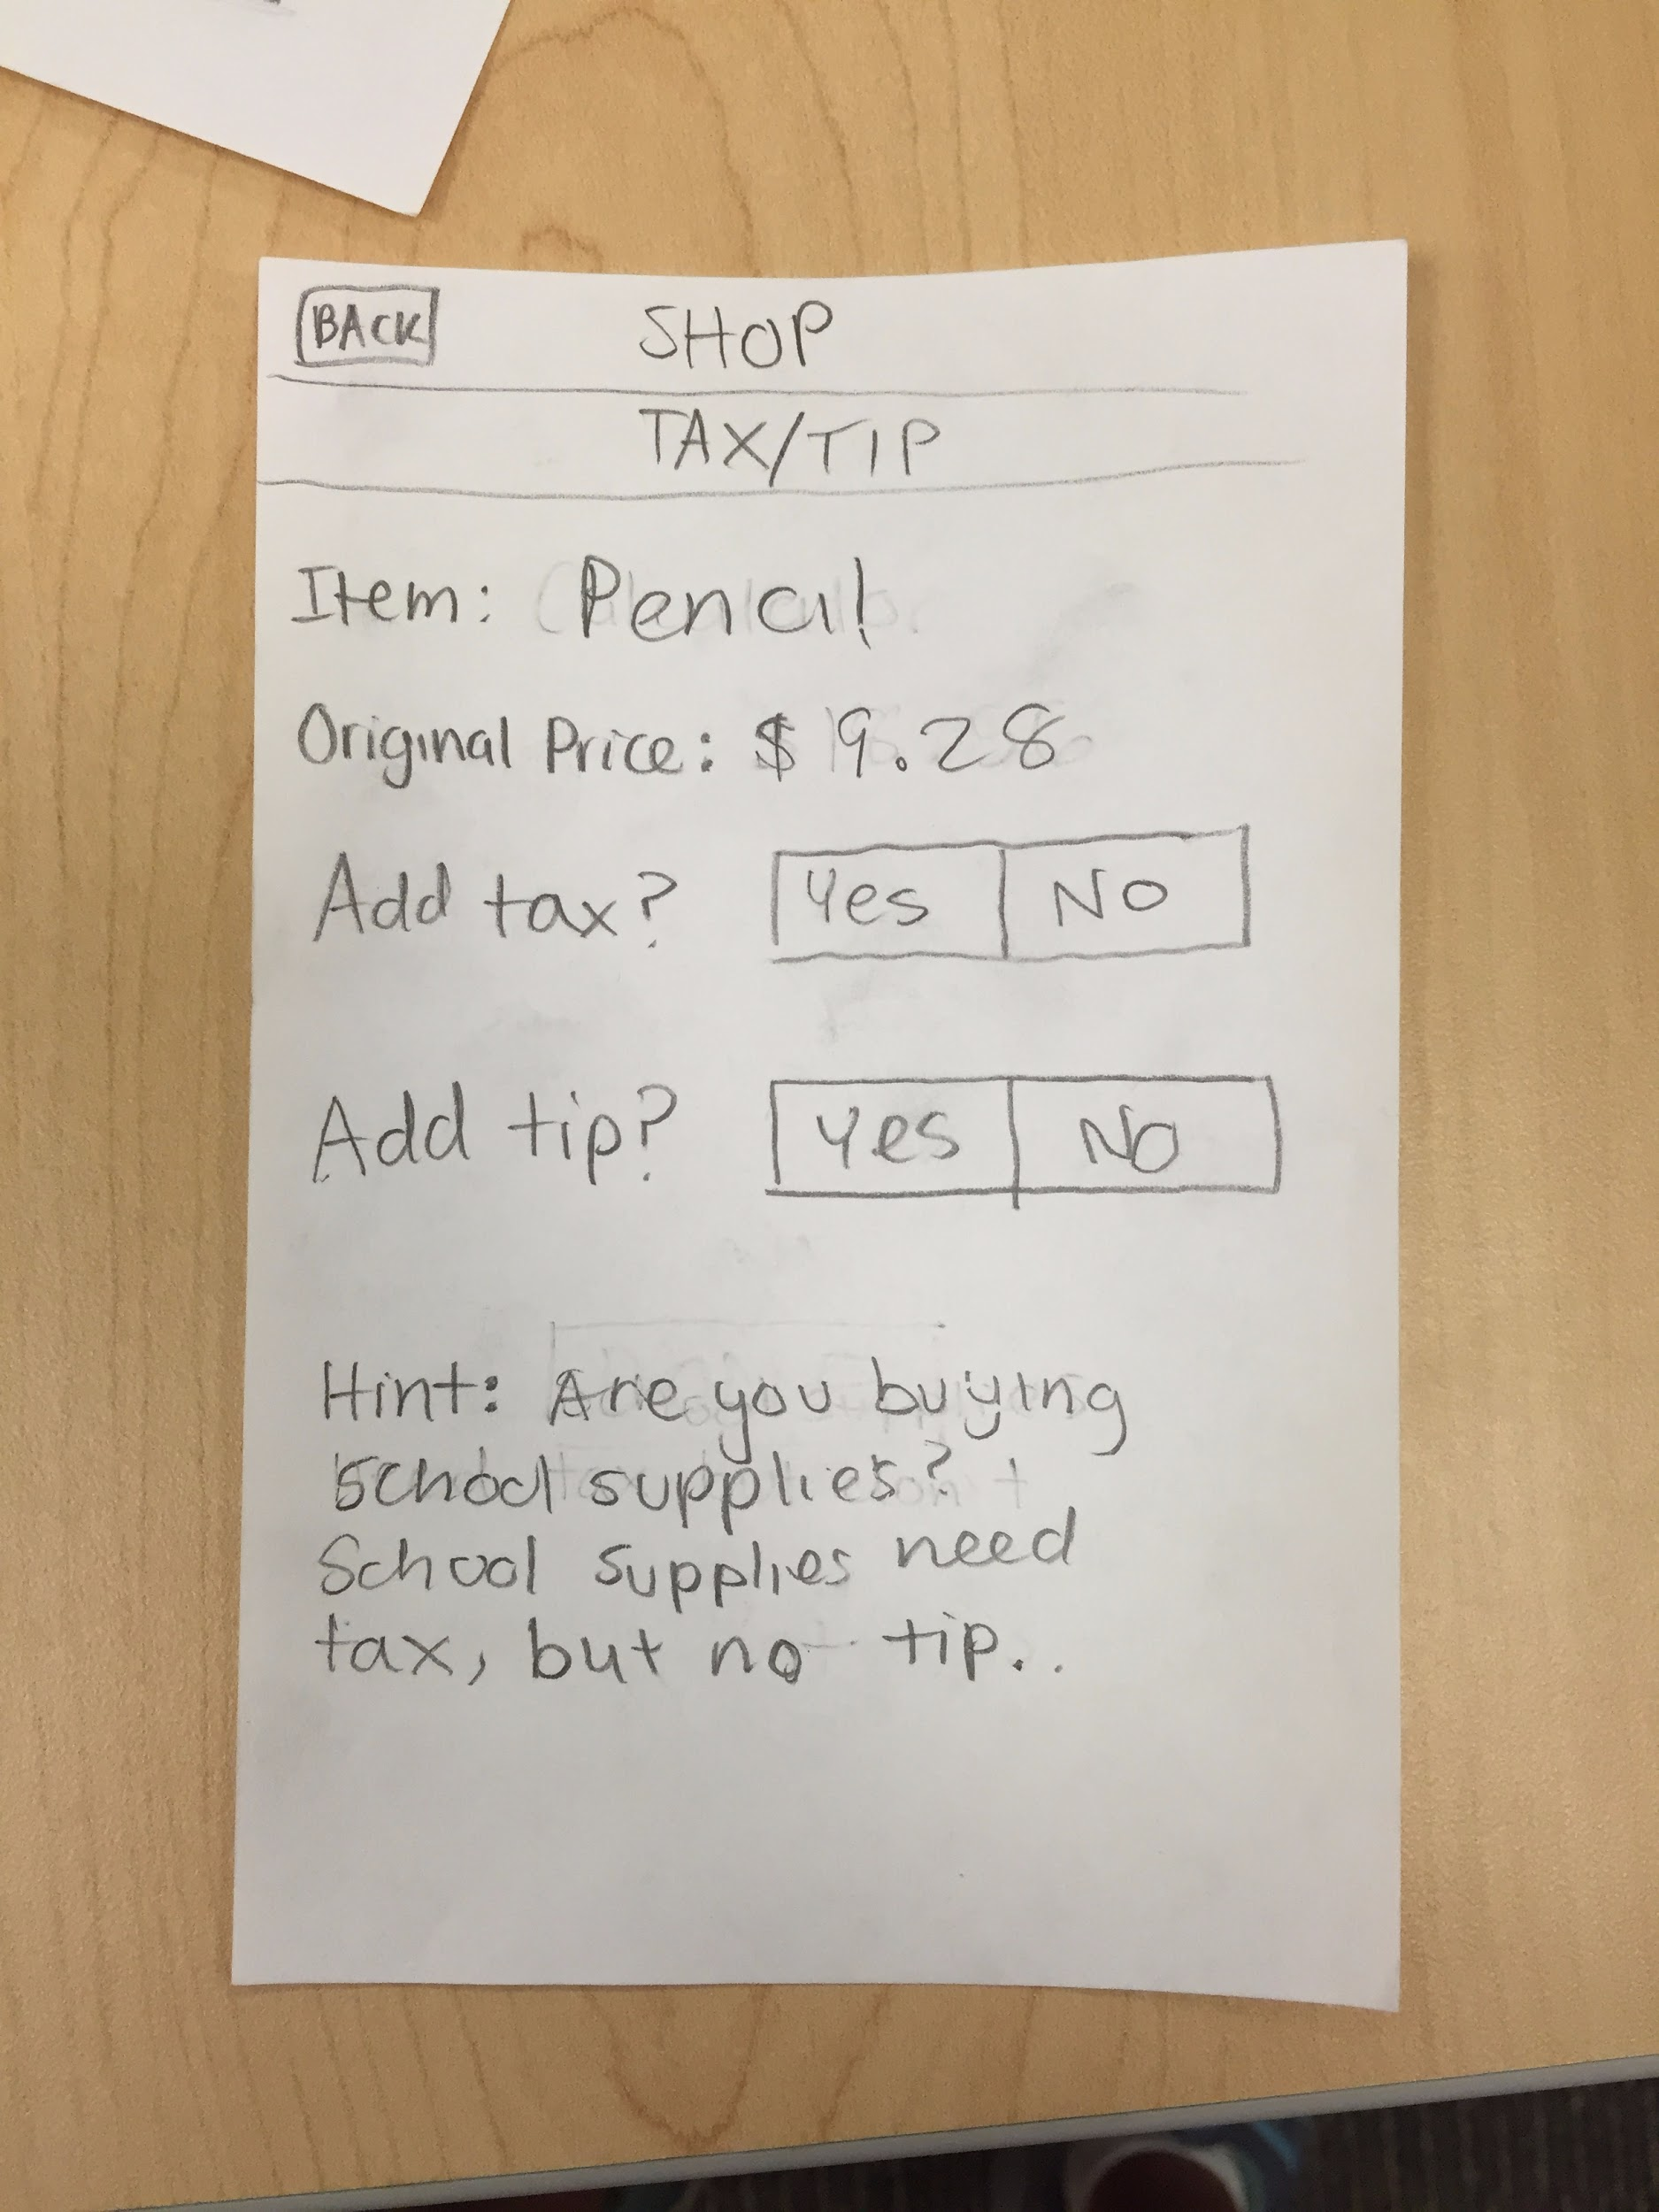 BACK SHOP
TAX/TIP
Item: Pencil
Original Price: $ 9.28
Add tax? Yes No
Add tip? Yes No
Hint: Are you buying
School supplies?
School supplies need
tax, but no tip..